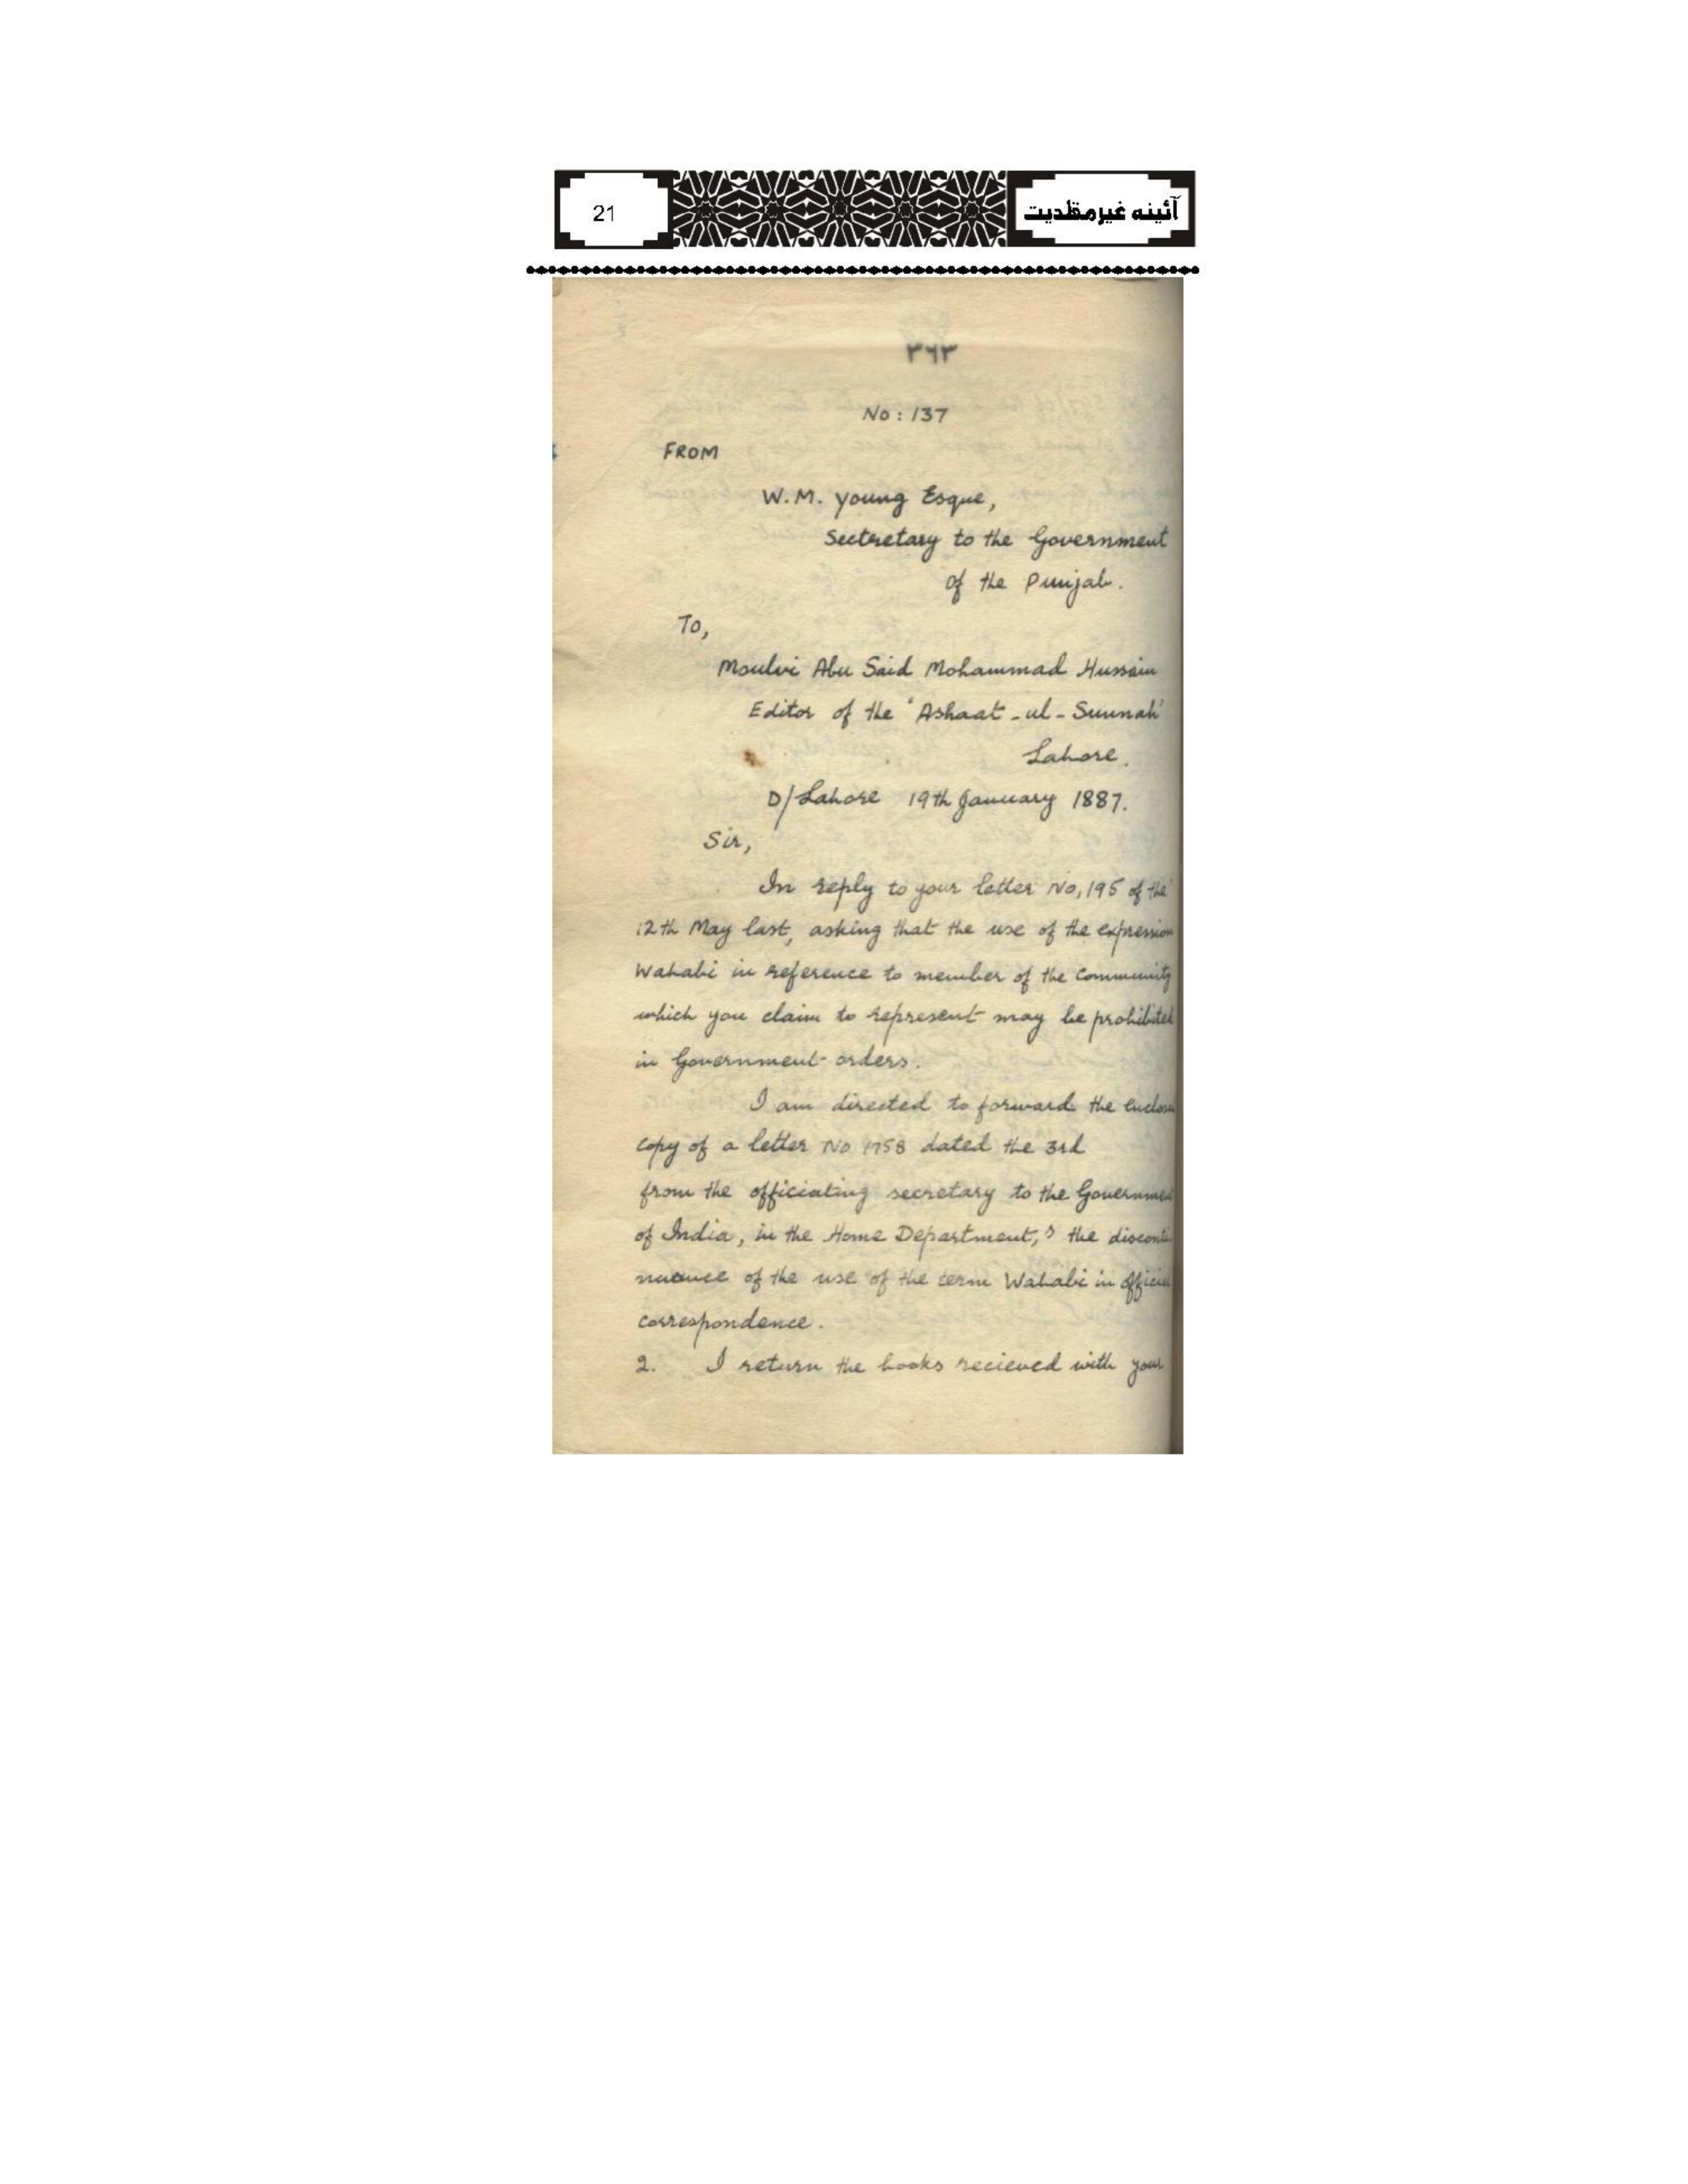 21
آئینہ غیر مقلدیت
۳۶۲
No: 137
FROM
W.M. young Esque,
Sectretary to the Government
of the Punjab.
To,
Moulvi Abu Said Mohammad Hussain
Editor of the 'Ashaat-ul-Sunnah'
Lahore.
D/Lahore 19th January 1887.
Sir,
In reply to your letter No, 195 of the
12th May last, asking that the use of the expression
Wahabi in reference to member of the Community
which you claim to represent may be prohibited
in Government orders.
I am directed to forward the
copy of a letter No 1758 dated the 3rd
from the officiating secretary to the
of India, in the Home Department, the disconti
nuance of the use of the term Wahabi in
correspondence.
2. I return the books recieved with your